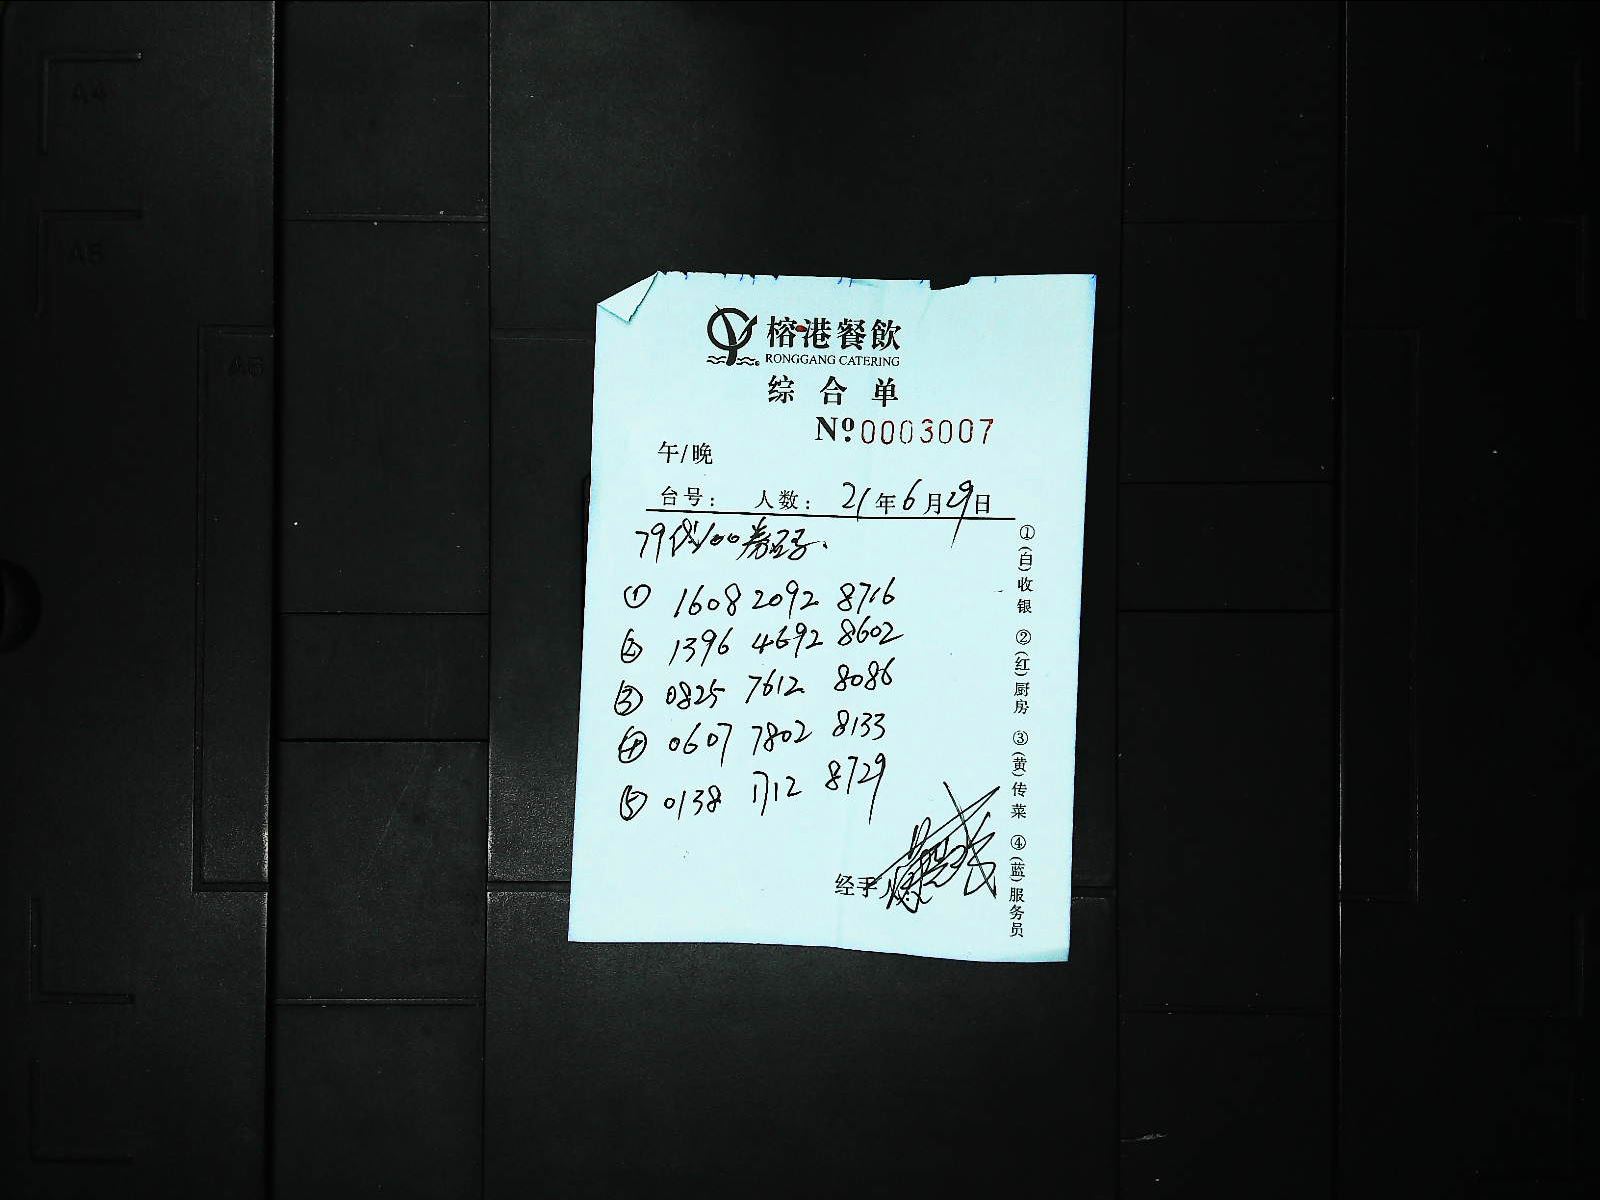 榕港餐飲
RONGGANG CATERING
综合单
Nº0003007
午/晚
台号： 人数： 21年6月29日
79代100券号.
① 1608 2092 8716
② 1396 4692 8602
③ 0825 7612 8086
④ 0607 7802 8133
⑤ 0138 1712 8729
经手
①(白)收银 ②(红)厨房 ③(黄)传菜 ④(蓝)服务员
A4
A5
A6